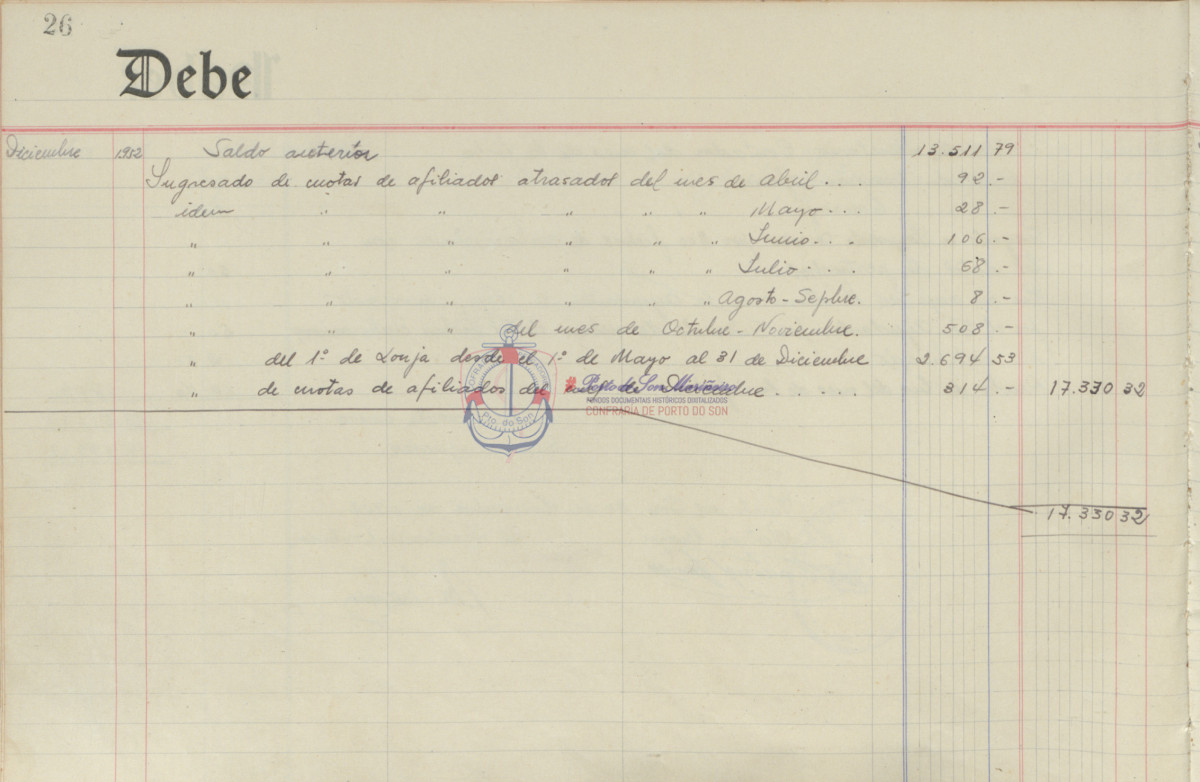 26
Debe
Diciembre 1952 Saldo anterior 13.511 79
Ingresado de cuotas de afiliados atrasados del mes de Abril . . . 92 .-
idem " " " " " Mayo . . . 28 .-
" " " " " " Junio . . . 106 .-
" " " " " " Julio . . . 68 .-
" " " " " " Agosto - Sepbre. 8 .-
" " " del mes de Octubre - Noviembre. 508 .-
" del 1º de Lonja desde el 1º de Mayo al 31 de Diciembre 2.694 53
" de cuotas de afiliados del mes de Diciembre . . . . . 314 .- 17.330 32
# Porto do Son Mariñeiro
FONDOS DOCUMENTAIS HISTÓRICOS DIXITALIZADOS
CONFRARÍA DE PORTO DO SON
Pto. do Son
17.330 32